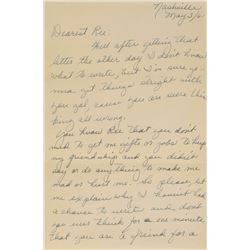 Nashville
May 3/61
Dearest Ree:
Well after getting that
letter the other day I don't know
what to write, but I'm sure
gonna get things straight with
you gal, cause you are seeing this
thing all wrong.
You know Ree that you don't
need to get me gifts or jobs to buy
my friendship and you didn't
say or do anything to make me
mad or hurt me. So please, let
me explain why I haven't had
a chance to write and don't
you ever think for a one minute
that you are a friend for a